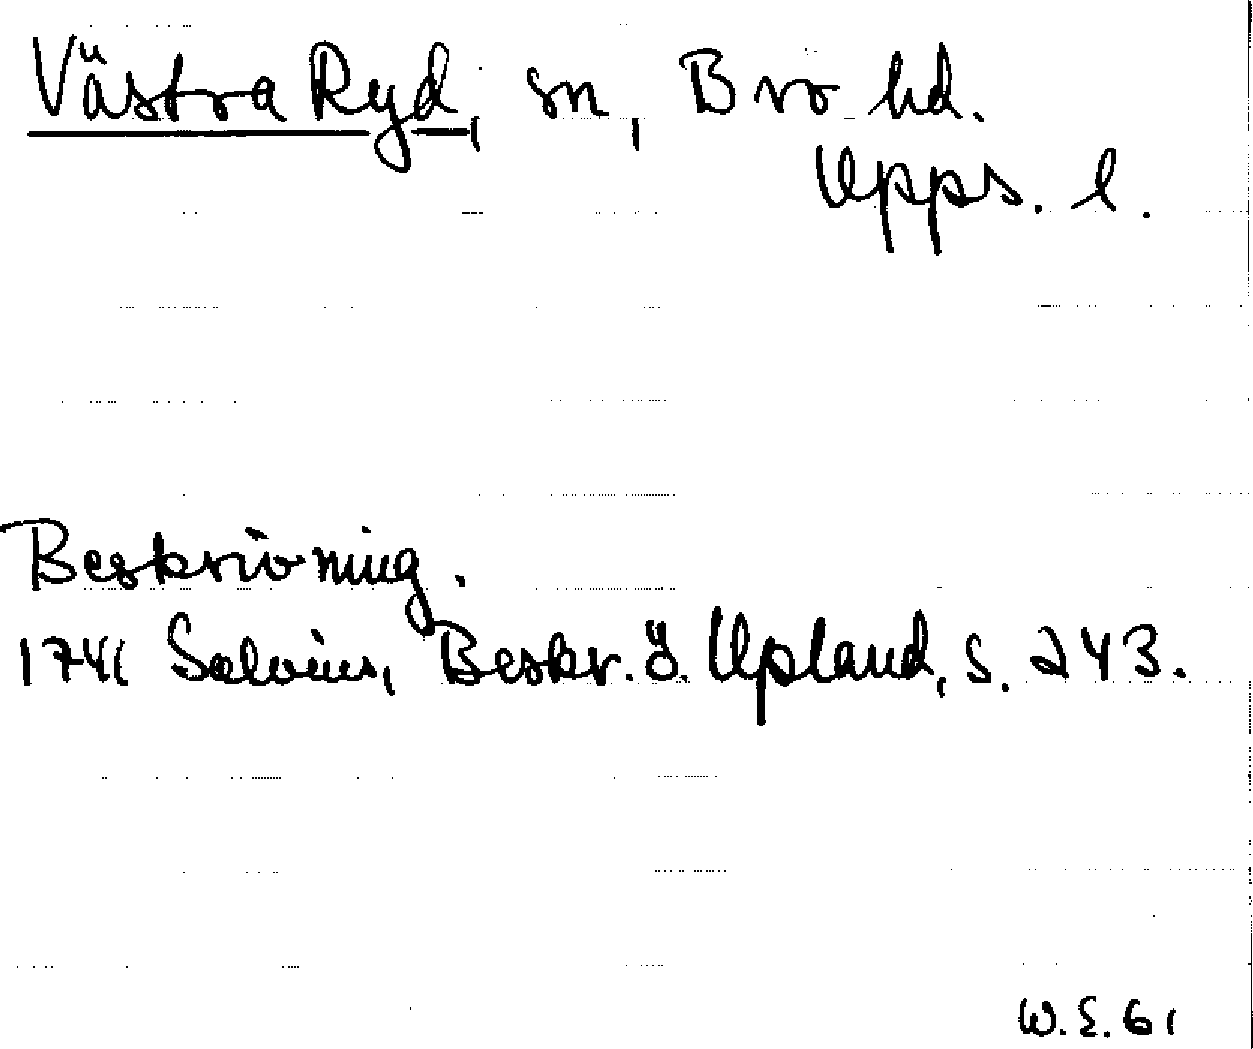 Västra Ryd, sn, Bro hd.
Upps. l.
Beskrivning.
1741 Salvius, Beskr. ö. Upland, s. 243.
W.E.61